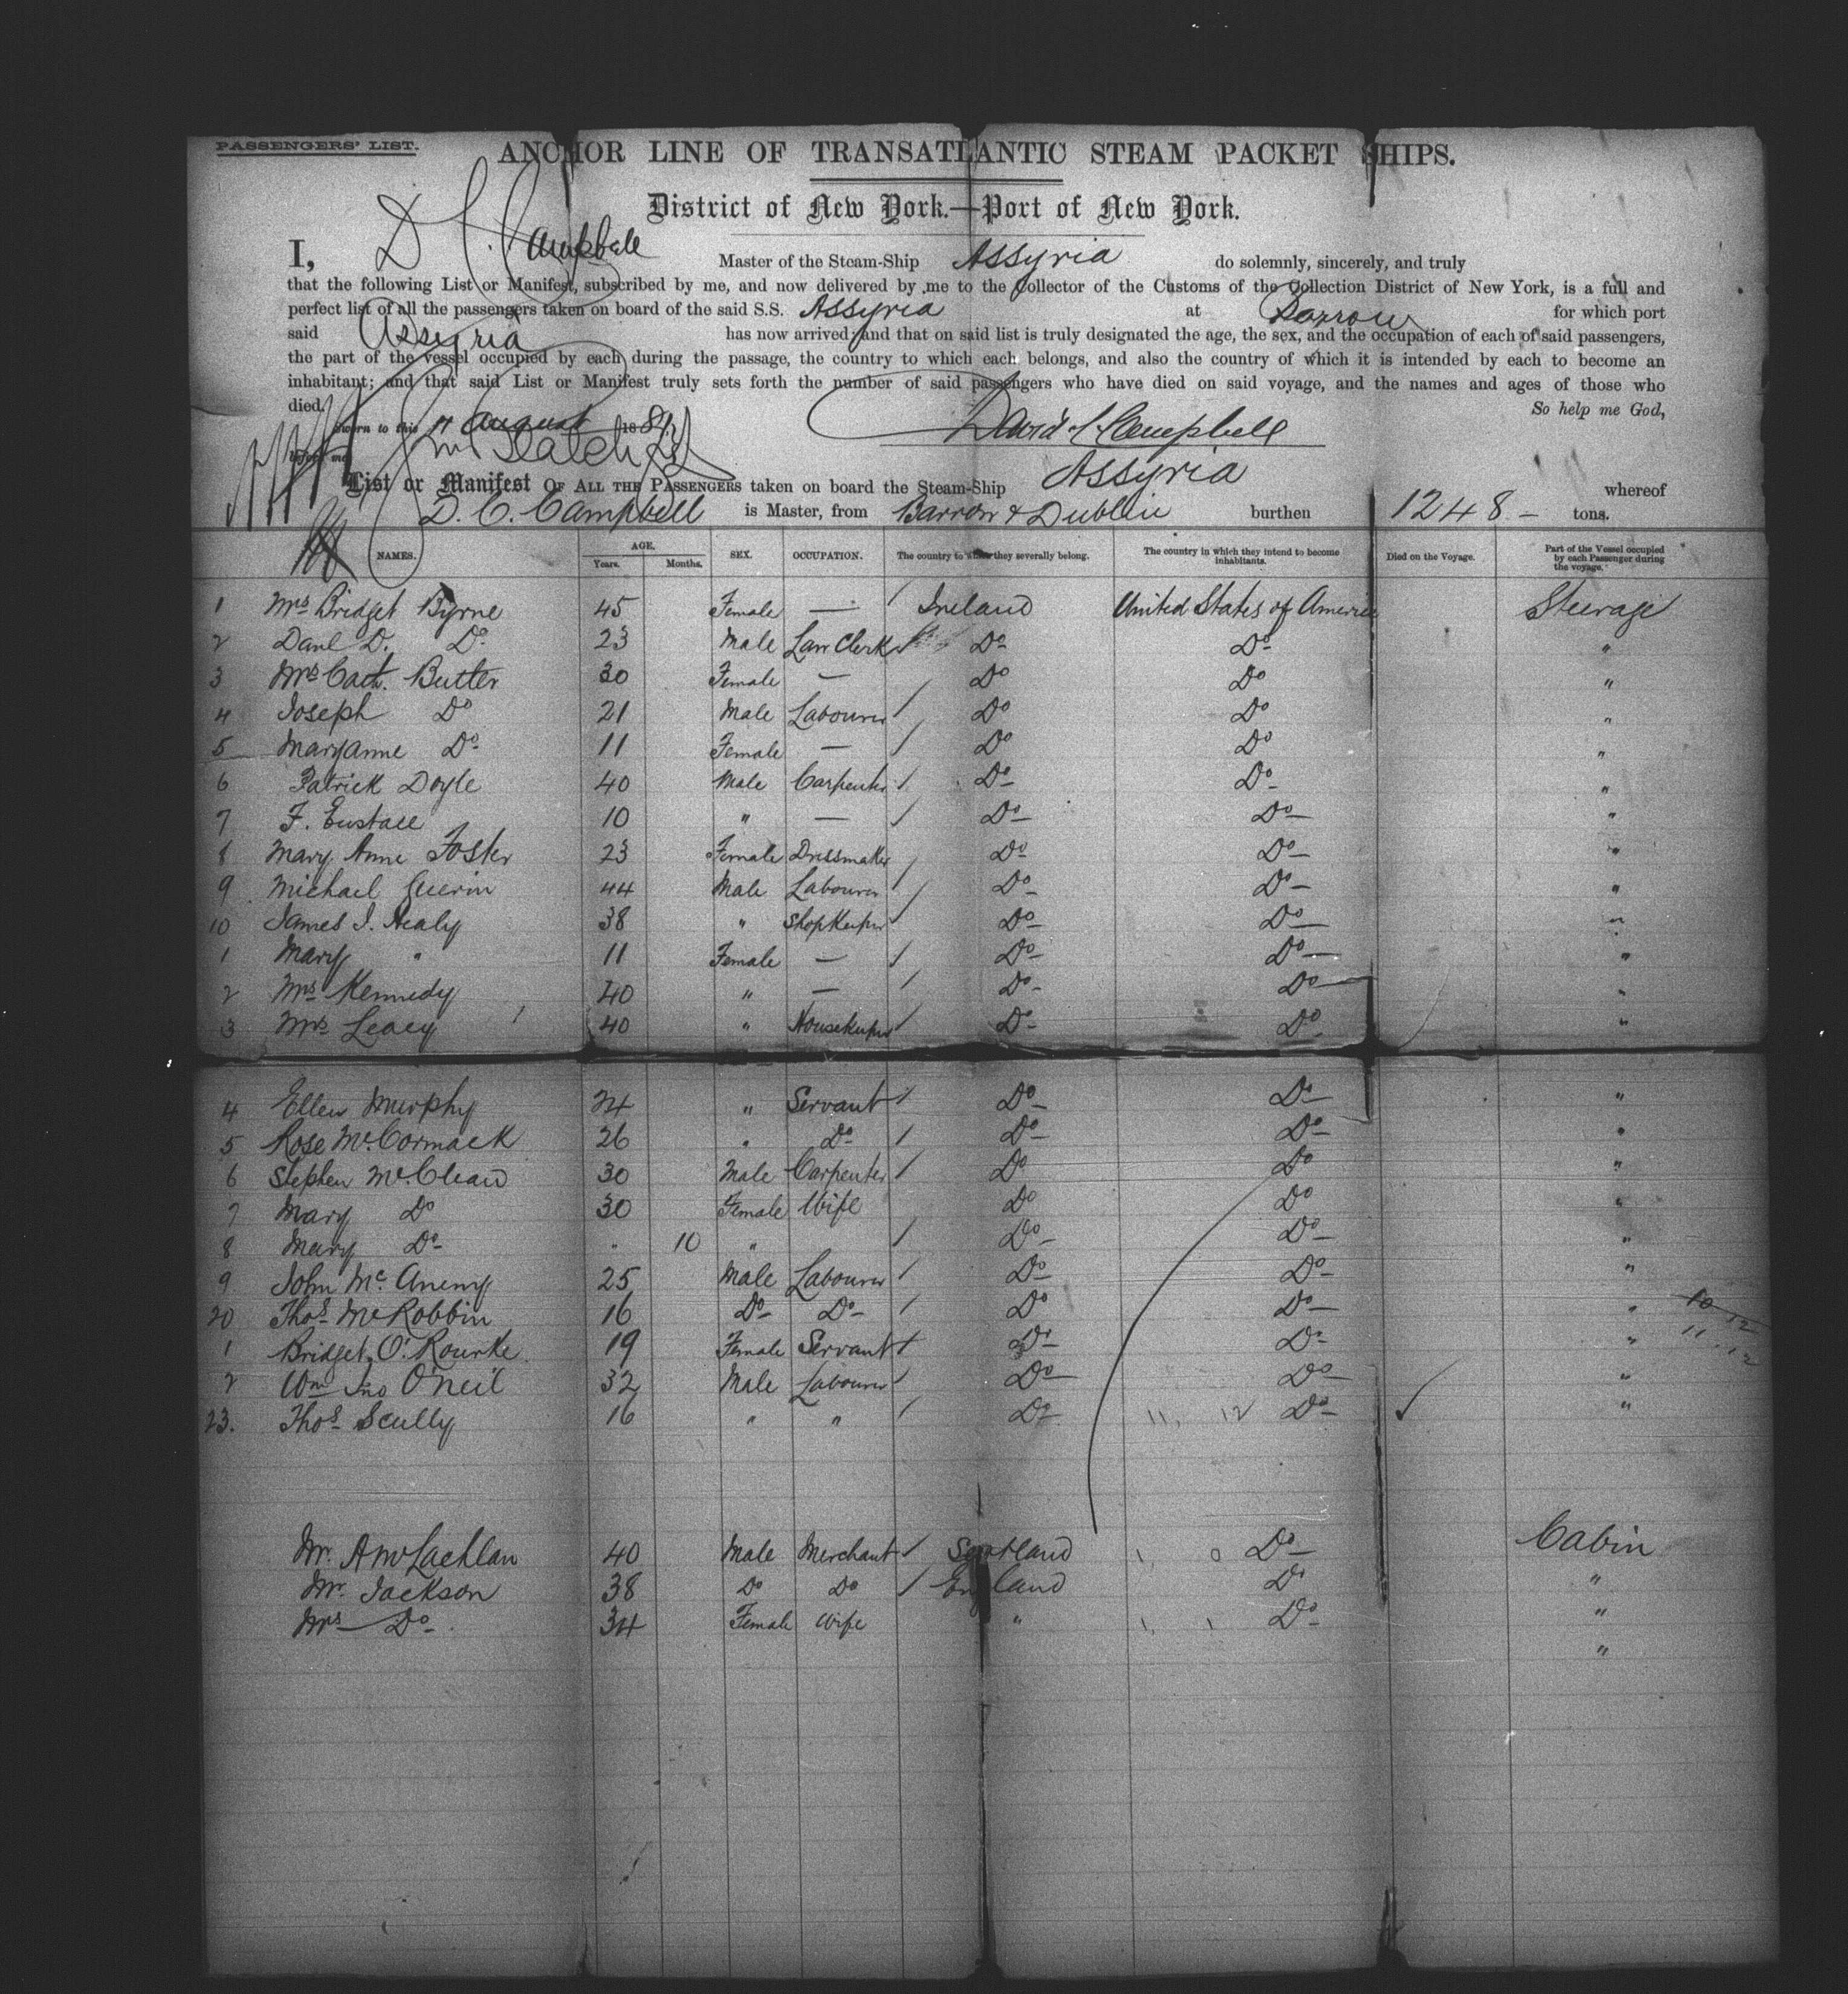 PASSENGERS' LIST.
ANCHOR LINE OF TRANSATLANTIC STEAM PACKET SHIPS.
District of New York.—Port of New York.
I, D C. Campbell Master of the Steam-Ship Assyria do solemnly, sincerely, and truly
that the following List or Manifest, subscribed by me, and now delivered by me to the Collector of the Customs of the Collection District of New York, is a full and
perfect list of all the passengers taken on board of the said S.S. Assyria at Barrow for which port
said Assyria has now arrived; and that on said list is truly designated the age, the sex, and the occupation of each of said passengers,
the part of the vessel occupied by each during the passage, the country to which each belongs, and also the country of which it is intended by each to become an
inhabitant; and that said List or Manifest truly sets forth the number of said passengers who have died on said voyage, and the names and ages of those who
died. So help me God,
Sworn to this 17 August 188
David C Campbell
before me
List or Manifest OF ALL THE PASSENGERS taken on board the Steam-Ship Assyria whereof
D. C. Campbell is Master, from Barrow & Dublin burthen 1248 – tons.
NAMES. AGE. Years. Months. SEX. OCCUPATION. The country to they severally belong. The country in which they intend to become inhabitants. Died on the Voyage. Part of the Vessel occupied by each Passenger during the voyage.
1 Mrs Bridget Byrne 45 Female — Ireland United States of America Steerage
2 Danl D. Do 23 Male Law Clerk Do Do "
3 Mrs Cath. Butter 30 Female — Do Do "
4 Joseph Do 21 Male Labourer Do Do "
5 Maryanne Do 11 Female — Do Do "
6 Patrick Doyle 40 Male Carpenter Do Do "
7 F. Eustace 10 " — Do Do "
8 Mary Anne Foster 23 Female Dressmaker Do Do "
9 Michael Guerin 44 Male Labourer Do Do "
10 James J. Healy 38 " Shopkeeper Do Do "
1 Mary " 11 Female — Do Do "
2 Mrs Kennedy 40 " — Do Do "
3 Mrs Leacy 40 " Housekeeper Do Do "
4 Ellen Murphy 24 " Servant Do Do "
5 Rose McCormack 26 " Do Do Do "
6 Stephen McClean 30 Male Carpenter Do Do "
7 Mary Do 30 Female Wife Do Do "
8 Mary Do " 10 " Do Do "
9 John Mc Aneny 25 Male Labourer Do Do "
20 Thos McRobbin 16 Do Do Do Do "
1 Bridget O'Rourke 19 Female Servant Do Do "
2 Wm Jno O'Neil 32 Male Labourer Do Do "
23. Thos Scully 16 " " Do 11, 12 Do "
Mr. A McLachlan 40 Male Merchant Scotland Do Cabin
Mr. Jackson 38 Do Do England Do "
Mrs Do 34 Female Wife " Do "
"